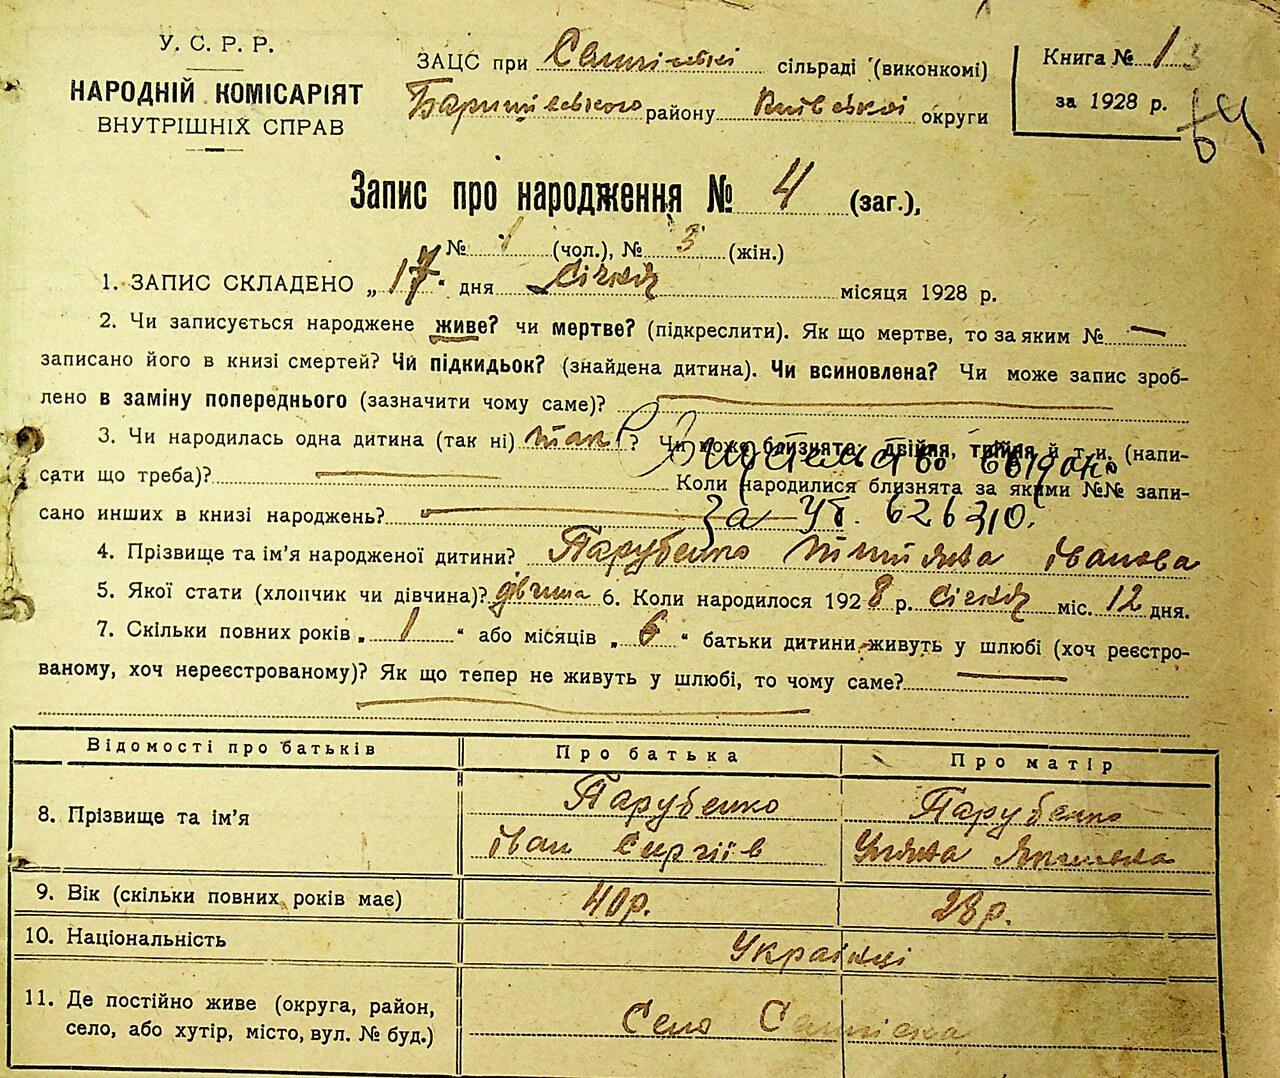 У. С. Р. Р.
НАРОДНІЙ КОМІСАРІЯТ
ВНУТРІШНІХ СПРАВ
ЗАЦС при сільраді (виконкомі)
Баришівського району Київської округи
Книга № 1
за 1928 р.
64
Запис про народження № 4 (заг.),
№ 1 (чол.), № 3 (жін.)
1. ЗАПИС СКЛАДЕНО „ 17 " дня Січня місяця 1928 р.
2. Чи записується народжене живе? чи мертве? (підкреслити). Як що мертве, то за яким № —
записано його в книзі смертей? Чи підкидьок? (знайдена дитина). Чи всиновлена? Чи може запис зроб-
лено в заміну попереднього (зазначити чому саме)?
3. Чи народилась одна дитина (так ні) так ? Чи може близнята, двійня, трійня й т. и. (напи-
сати що треба)? Коли народилися близнята за якими №№ запи-
сано инших в книзі народжень?
Свидетельство выдано
за УБ. 626310.
4. Прізвище та ім'я народженої дитини? Парубенко Іванова
5. Якої стати (хлопчик чи дівчина)? дівчина 6. Коли народилося 1928 р. січня міс. 12 дня.
7. Скільки повних років „ 1 " або місяців „ 6 " батьки дитини живуть у шлюбі (хоч реєстро-
ваному, хоч нереєстрованому)? Як що тепер не живуть у шлюбі, то чому саме?
Відомості про батьків Про батька Про матір
8. Прізвище та ім'я Парубенко Іван Сергіїв Парубенко Уляна
9. Вік (скільки повних років має) 40р. 28р.
10. Національність Українці
11. Де постійно живе (округа, район,
село, або хутір, місто, вул. № буд.) Село